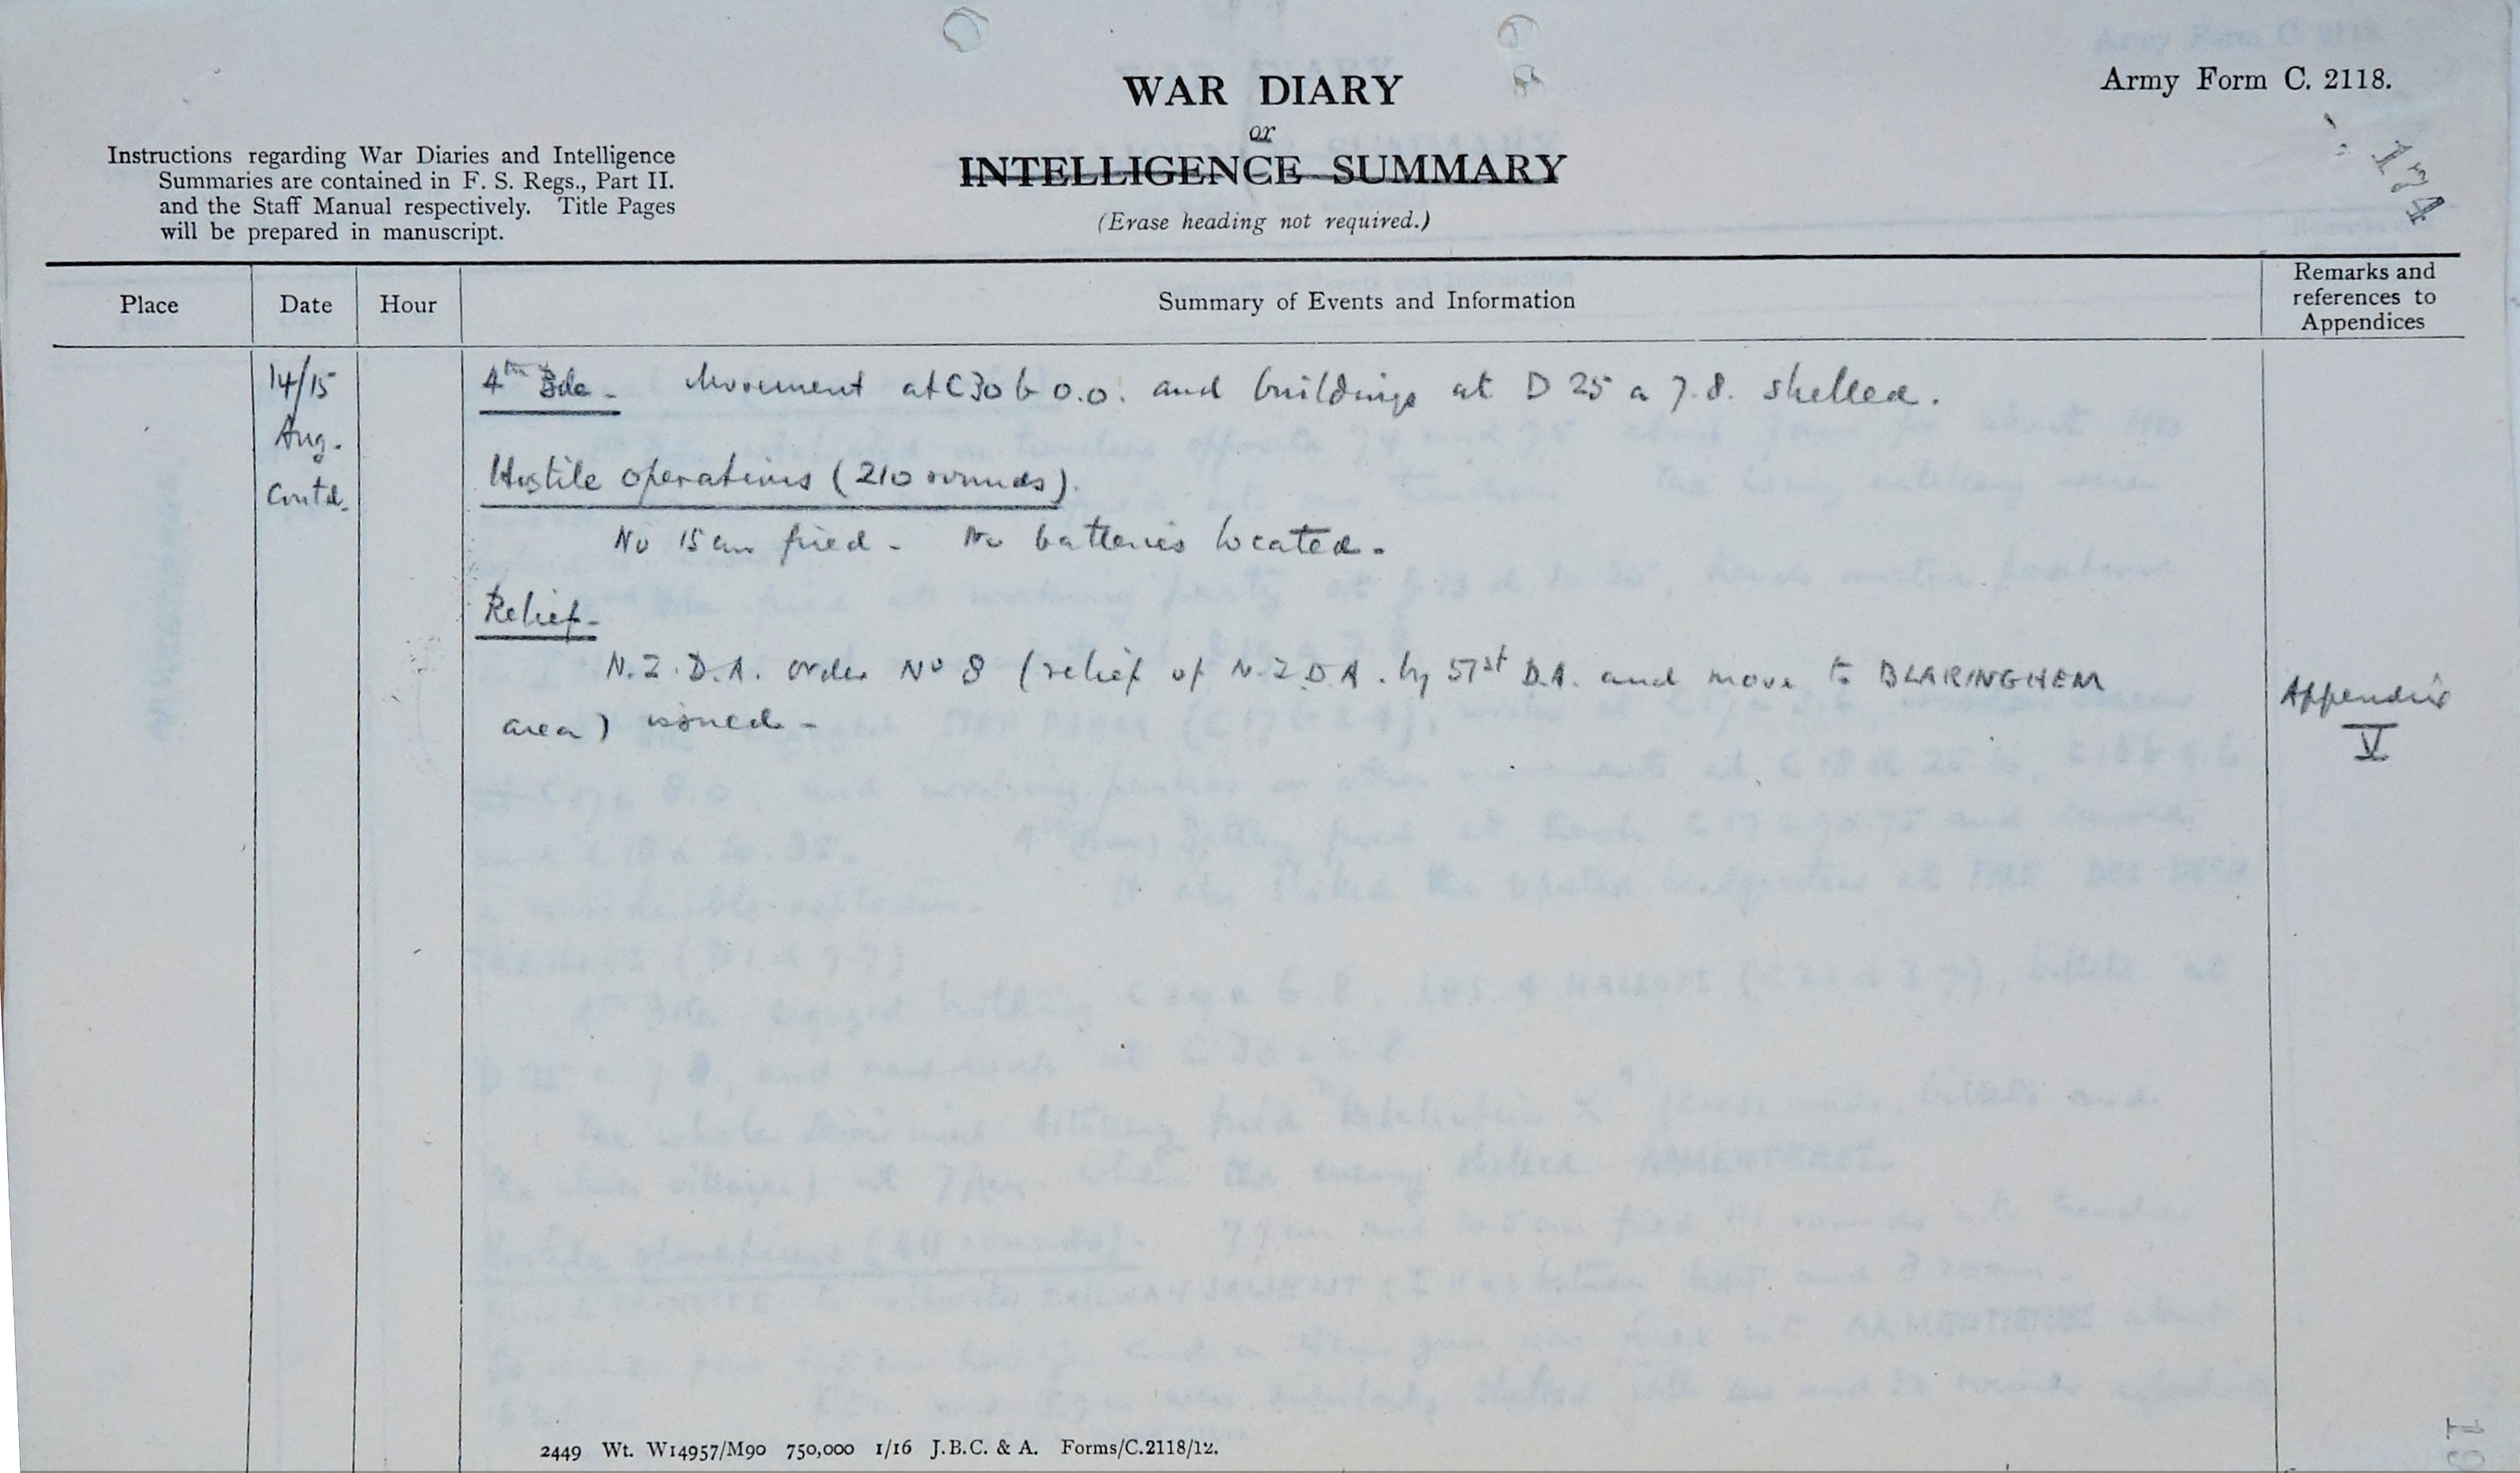 Army Form C. 2118.
WAR DIARY
or
INTELLIGENCE SUMMARY
(Erase heading not required.)
Instructions regarding War Diaries and Intelligence
Summaries are contained in F. S. Regs., Part II.
and the Staff Manual respectively. Title Pages
will be prepared in manuscript.
174
Place
Date
Hour
Summary of Events and Information
Remarks and
references to
Appendices
14/15
Aug.
Contd.
4th Bde. Movement at C30 b 0.0. and buildings at D 25 a 7.8. shelled.
Hostile operations (210 rounds).
No 15 cm fired - No batteries located.
Relief.
N.Z.D.A. order No 8 (relief of N.Z.D.A. by 51st D.A. and move to BLARINGHEM
area) issued -
Appendix
V
2449 Wt. W14957/M90 750,000 1/16 J.B.C. & A. Forms/C.2118/12.
19